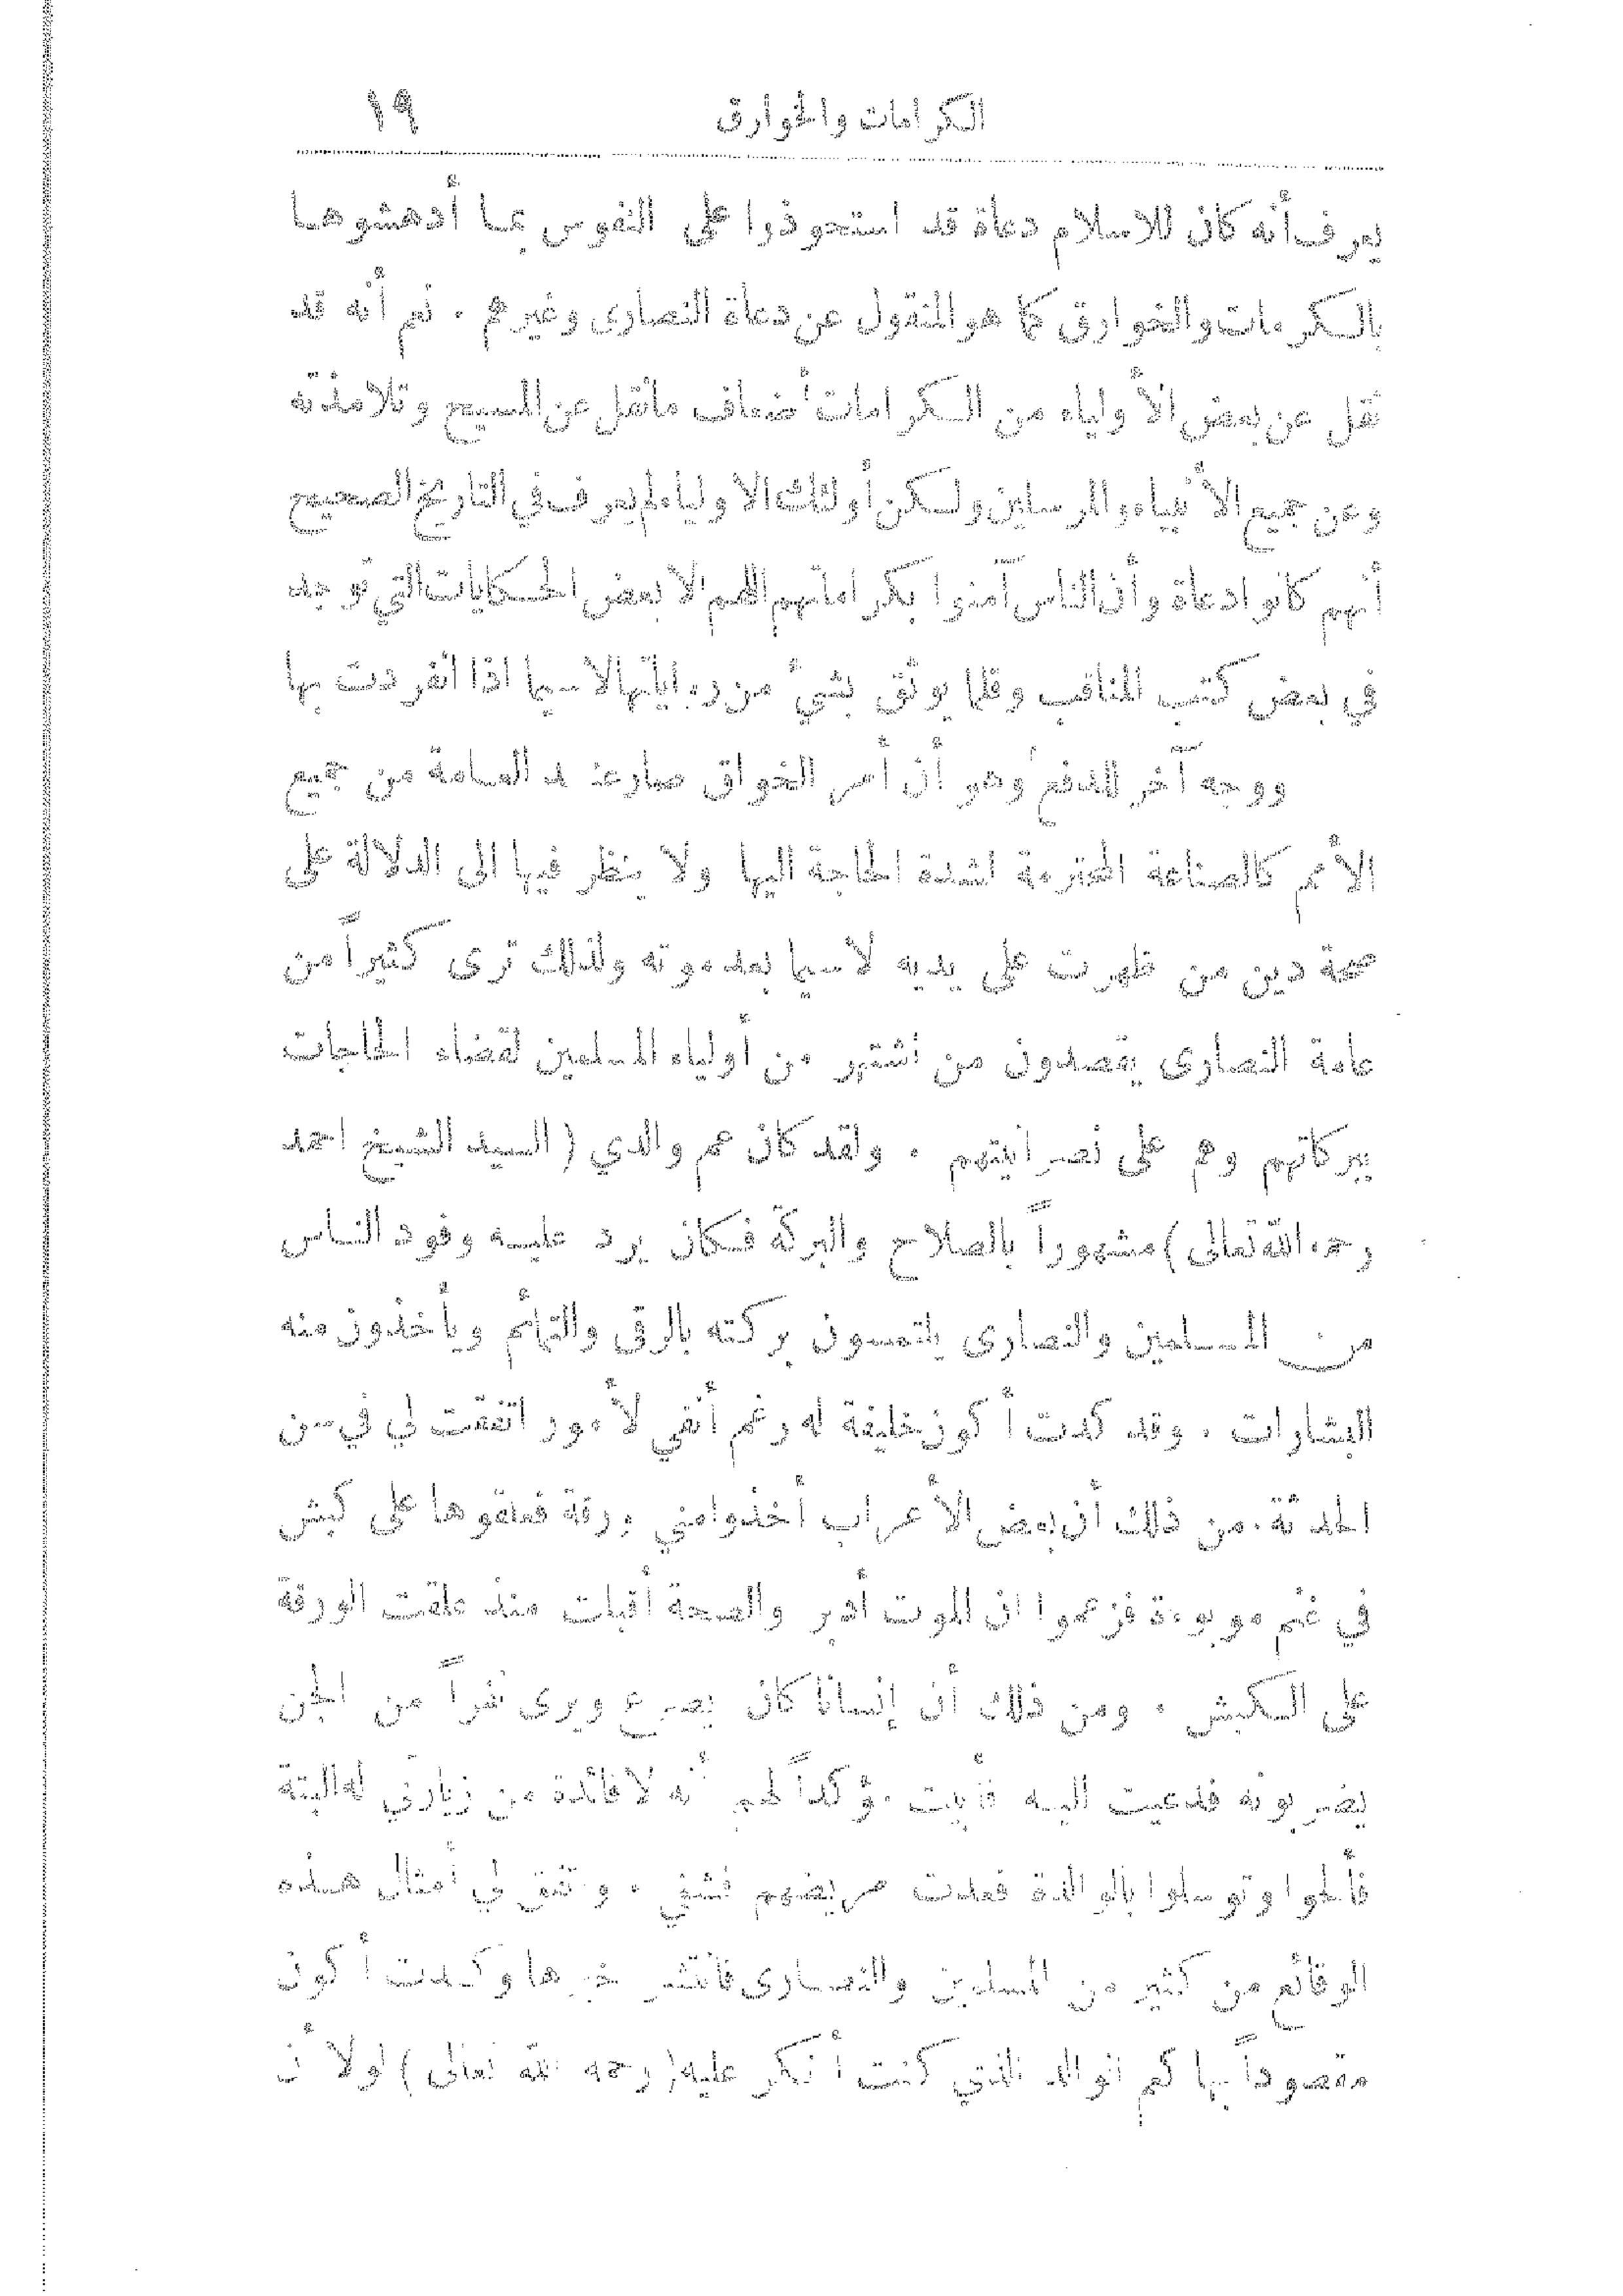 الكرامات والخوارق ١٩
يعرف أنه كان للاسلام دعاة قد استحوذوا على النفوس بما أدهشوها
بالكرامات والخوارق كما هو المنقول عن دعاة النصارى وغيرهم . نعم أنه قد
نقل عن بعض الأولياء من الكرامات أضعاف مانقل عن المسيح وتلامذته
وعن جميع الأنبياء والمرسلين ولكن أولئك الاولياء لم يعرف في التاريخ الصحيح
أنهم كانوا دعاة وأن الناس آمنوا بكراماتهم اللهم الا بعض الحكايات التي توجد
في بعض كتب المناقب وقلما يوثق بشيء من رواياتها لاسيما اذا انفردت بها
ووجه آخر للدفع وهو أن أمر الخواق صار عند العامة من جميع
الأمم كالصناعة المحترمة لشدة الحاجة اليها ولا ينظر فيها الى الدلالة على
صحة دين من ظهرت على يديه لاسيما بعد موته ولذلك ترى كثيراً من
عامة النصارى يقصدون من اشتهر من أولياء المسلمين لقضاء الحاجات
ببركاتهم وهم على نصرانيتهم . ولقد كان عم والدي (السيد الشيخ احمد
رحمه الله تعالى) مشهوراً بالصلاح والبركة فكان يرد عليه وفود الناس
من المسلمين والنصارى يلتمسون بركته بالرقى والتمائم ويأخذون منه
البشارات . وقد كدت أكون خليفة له رغم أنفي لأمور اتفقت لي في سن
الحداثة . من ذلك أن بعض الأعراب أخذوا مني ورقة فعلقوها على كبش
في غنم موبوءة فزعموا ان الموت أدبر والصحة أقبلت منذ علقت الورقة
على الكبش . ومن ذلك أن إنسانا كان يصرع ويرى نفراً من الجن
يضربونه فدعيت اليه فأبيت مؤكداً لهم أنه لا فائدة من زيارتي له البتة
فألحوا وتوسلوا بالوالدة فعدت مريضهم فشفي . واتفق لي أمثال هذه
الوقائع من كثير من المسلمين والنصارى فانتشر خبرها وكدت أكون
مقصوداً بها كعم الوالد الذي كنت أنكر عليه (رحمه الله تعالى) لولا أن